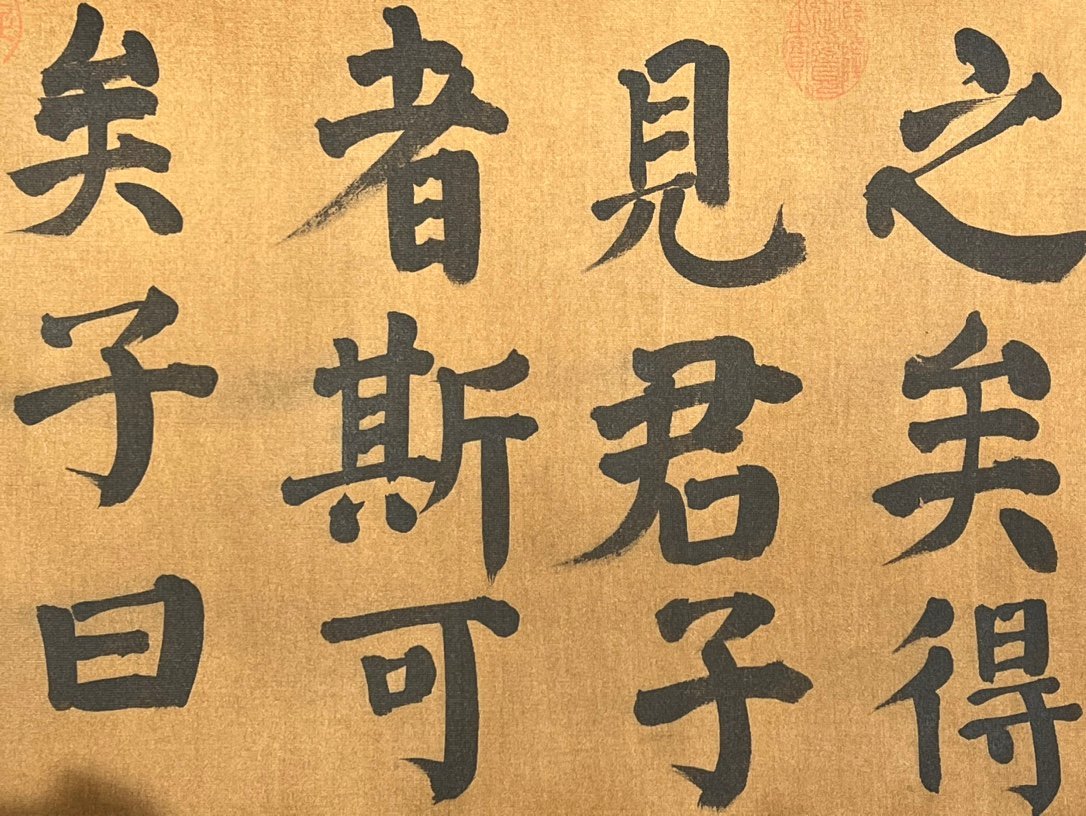 之矣得
見君子
者斯可
矣子曰